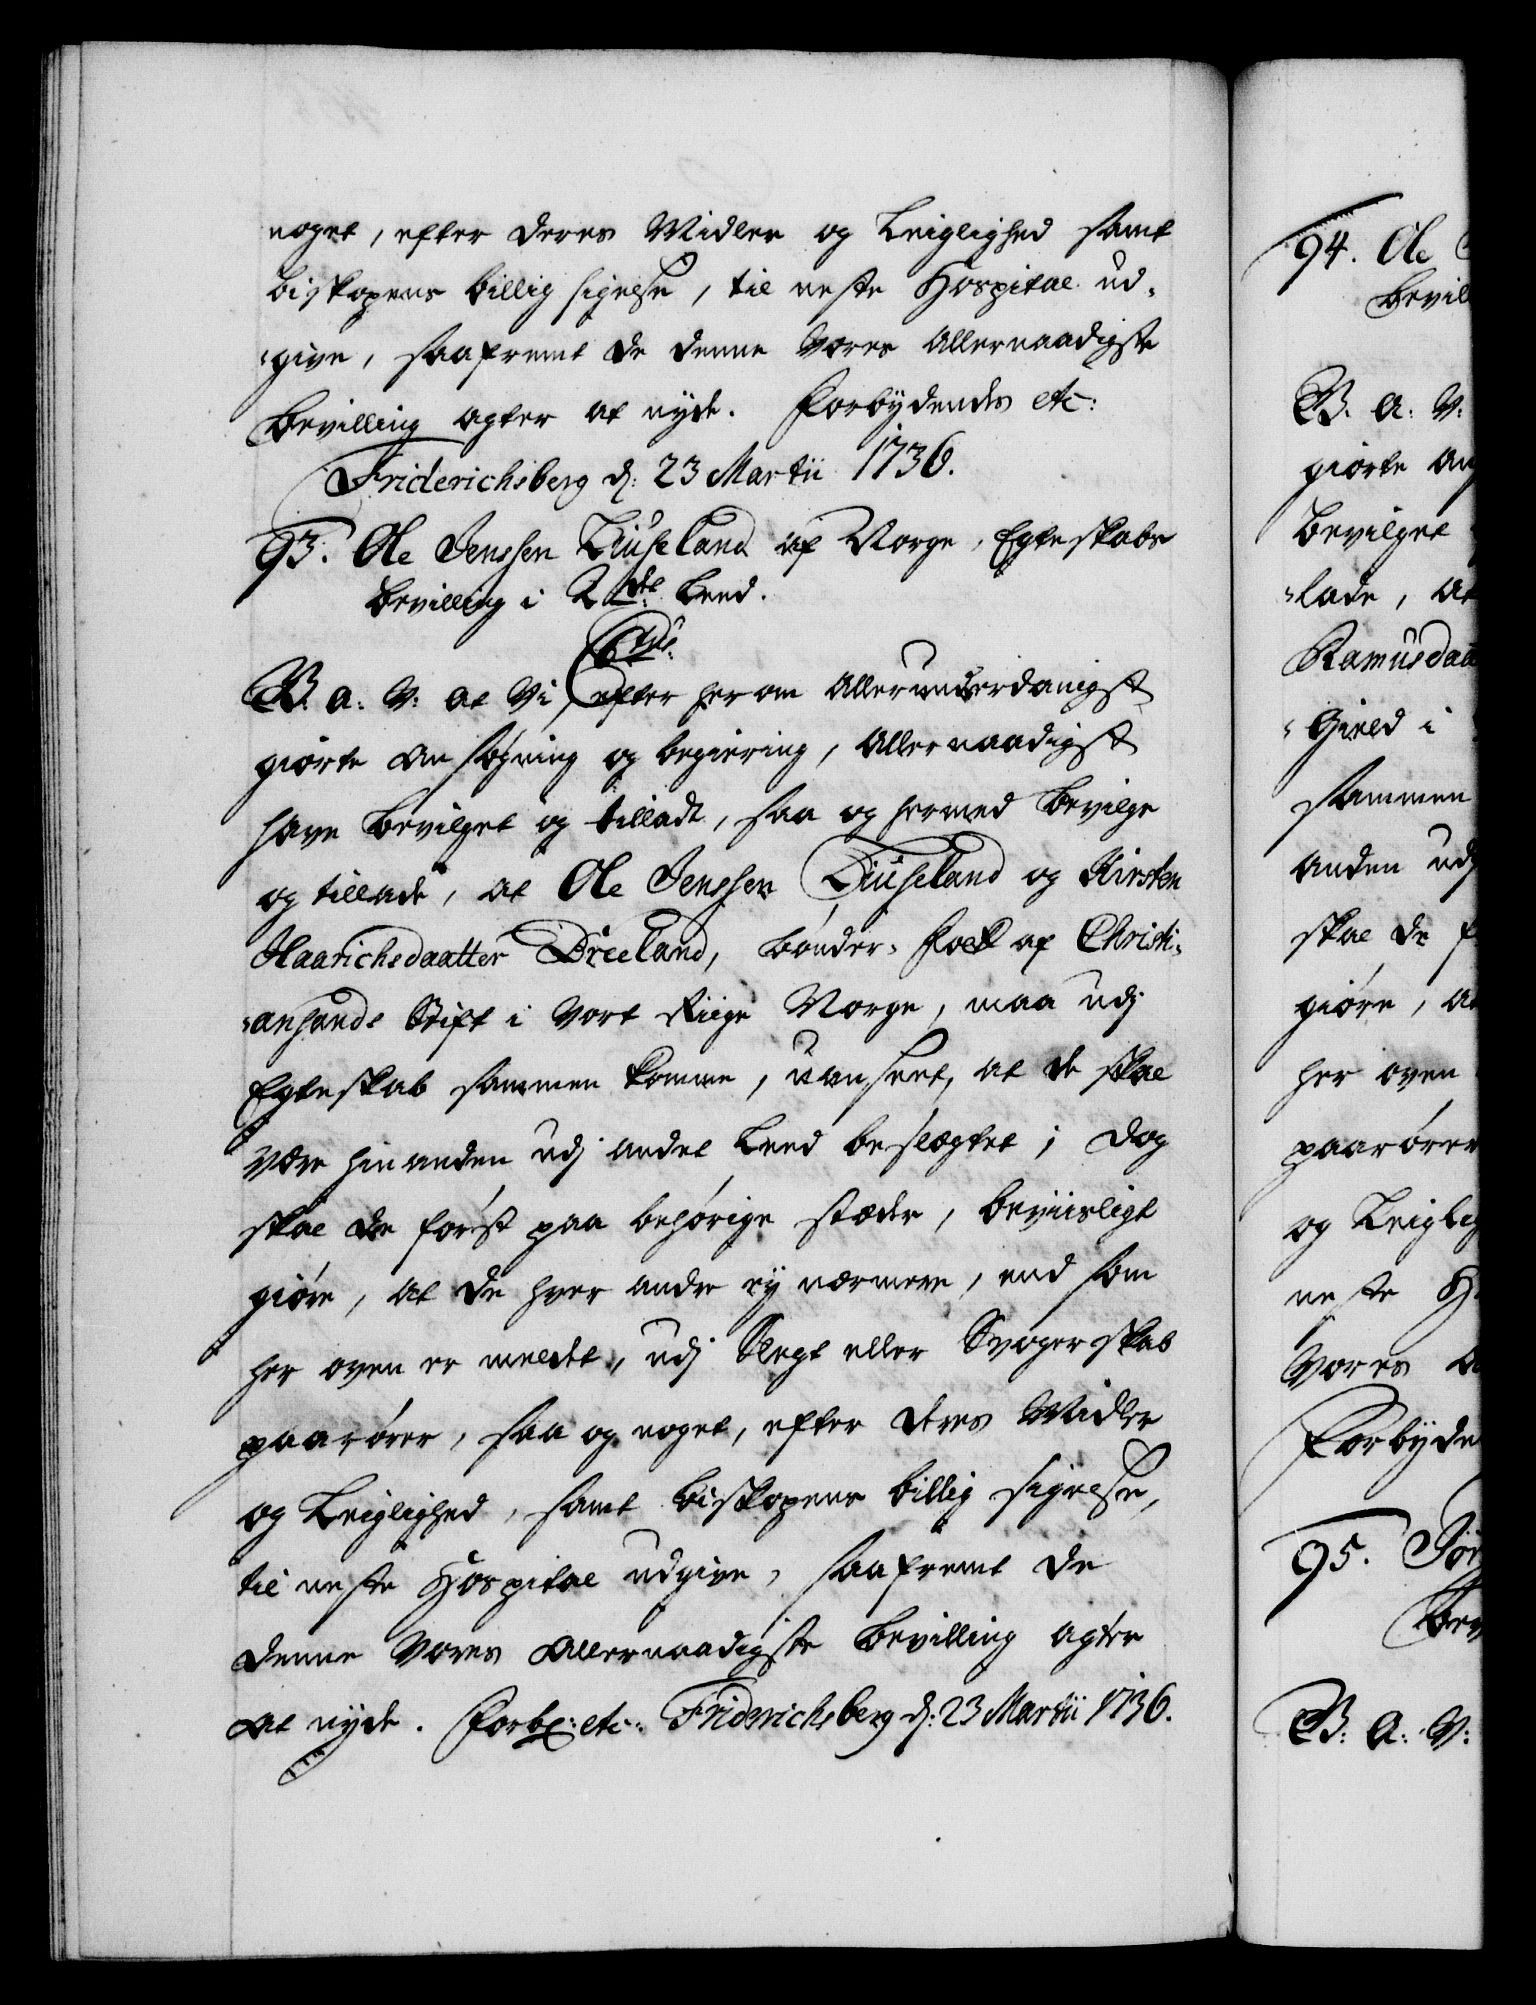 noget, efter deres Midler og Leiglighed samt
biskopens billig sigelse, til neste Hospital ud-
give, saafremt de denne Vores Allernaadigste
Bevilling agter at nyde. Forbydendes etc:
Friderichsberg d: 23 Martii 1736.
93. Ole Jenssen Liuseland af Norge, Egteskabs
bevilling i 2det Leed.
B. a. V: at Vi, efter herom Allerunderdanigst
giorte Ansøgning og begiering, Allernaadigst
have bevilget og tilladt, saa og hermed bevilge
og tillade, at Ole Jenssen Liuseland og Kirsten
Haarichsdaatter Dreeland, bønder-Folk af Christi-
ansands Stift i Vort Riige Norge, maa udj
Egteskab sammen komme, uanseet, at de skal
være hinanden udj andet Leed beslægtet; dog
skal de først paa behørige stæder, beviisligt
giøre, at de hver andre ey nærmere, end som
her oven er meldt, udj Slegt eller Svogerskab
paarører, saa og noget, efter deres Midler
og Leiglighed, samt biskopens billig sigelse,
til neste Hospital udgive, saafremt de
denne Vores Allernaadigste bevilling agter
at nyde. Forb: etc: Friderichsberg d: 23 Martii 1736.
94. Ole
bevil
B. a: V:
giorte An
bevilget
lade, at
Ramusdaa
Gield i
sammen
anden udj
skal de f
giøre, at
her oven
paarører
og Leiglig
neste H
Vores A
Forbyde
95. Jør
bev
B: a: V: